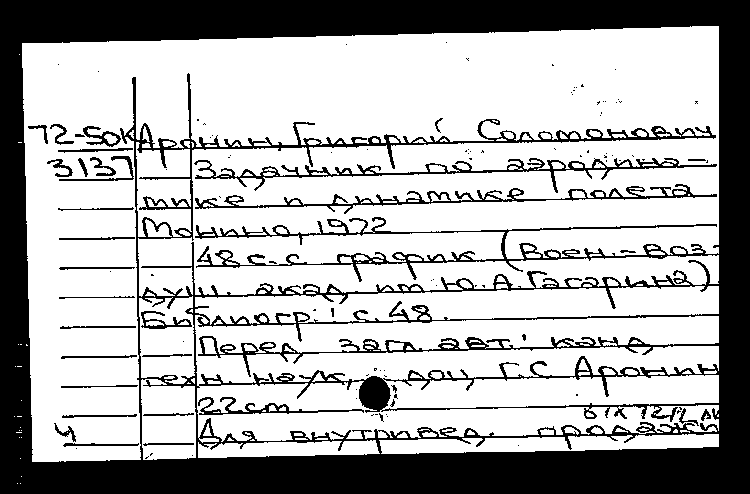 72-50К Аронин, Григорий Соломонович
3137 Задачник по аэродина-
мике и динамике полета
Монино, 1972
48 с. с график (Воен.-воз-
душ. акад им Ю.А. Гагарина)
Библиогр.: с. 48.
Перед загл. авт.: канд
техн. наук, доц Г.С Аронин
22 cm.
Ч Для внутривед. продажи